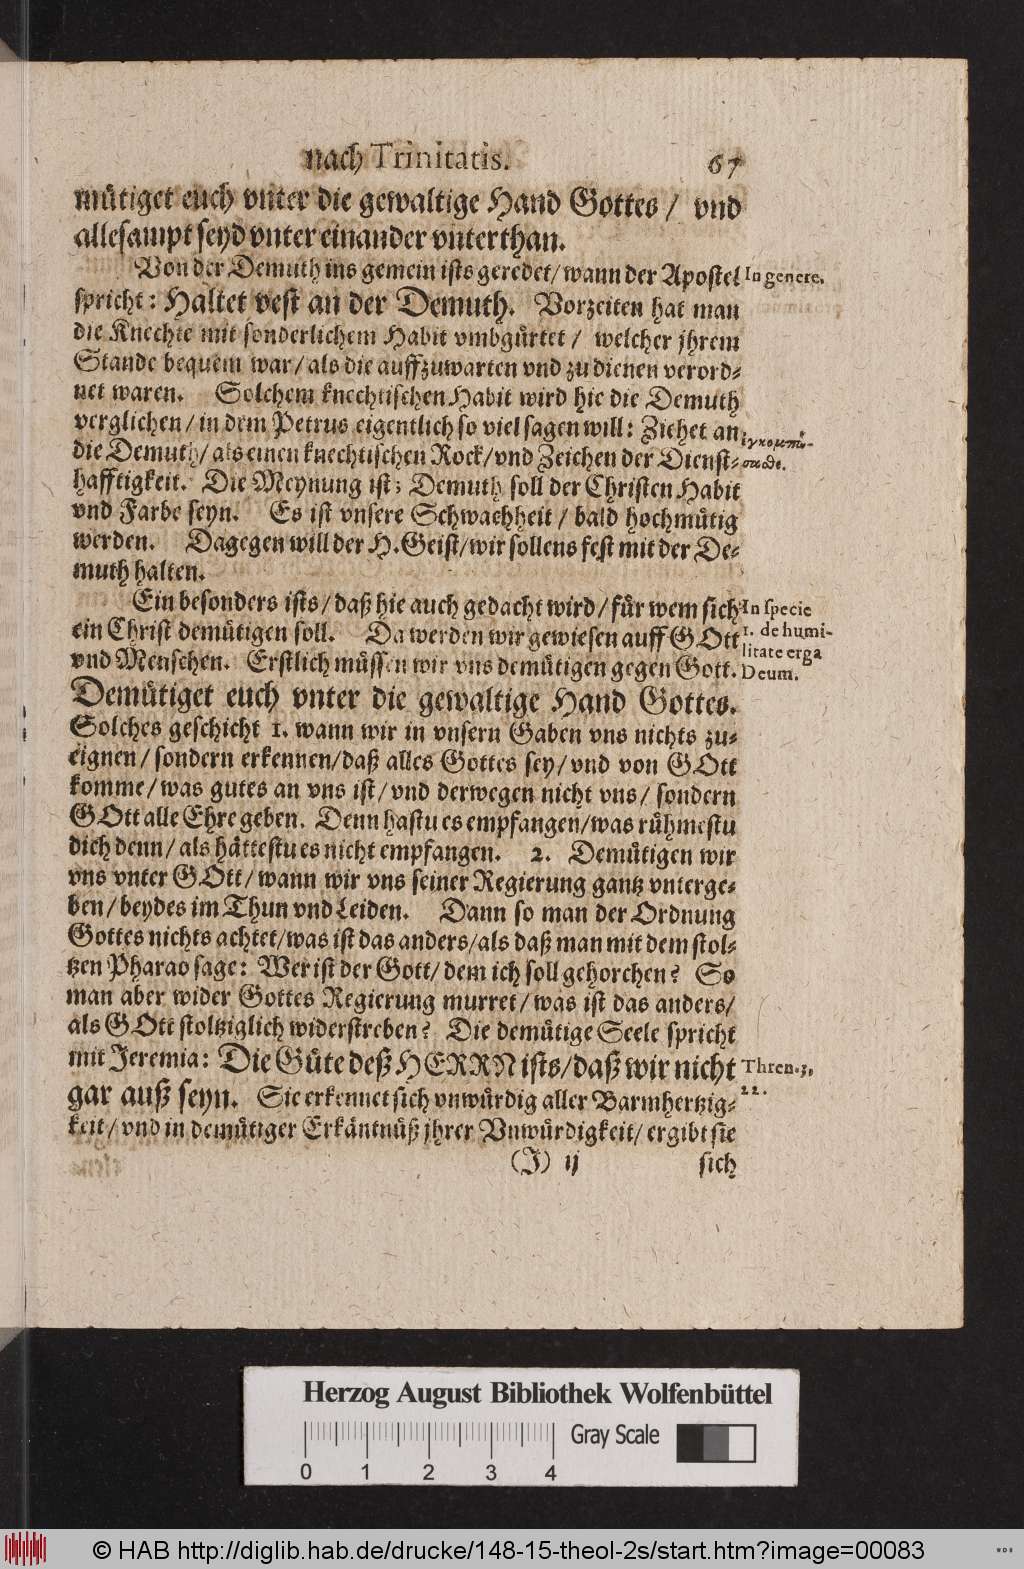 nach Trinitatis. 67
mütiget euch vnter die gewaltige Hand Gottes / vnd
allesampt seyd vnter einander vnterthan.
Von der Demuth ins gemein ists geredet/wann der Apostel
In genere.
spricht: Haltet vest an der Demuth. Vorzeiten hat man
die Knechte mit sonderlichem Habit vmbgürtet / welcher jhrem
Stande bequem war/als die auffzuwarten vnd zu dienen verord-
net waren. Solchem knechtischen Habit wird hie die Demuth
verglichen/in dem Petrus eigentlich so viel sagen will: Ziehet an
die Demuth/als einen knechtischen Rock/vnd Zeichen der Dienst-
hafftigkeit. Die Meynung ist; Demuth soll der Christen Habit
vnd Farbe seyn. Es ist vnsere Schwachheit / bald hochmütig
werden. Dagegen will der H. Geist/wir sollens fest mit der De-
muth halten.
Ein besonders ists/daß hie auch gedacht wird/für wem sich
In specie
ein Christ demütigen soll. Da werden wir gewiesen auff GOtt
1. de humi-
litate erga
vnd Menschen. Erstlich müssen wir vns demütigen gegen Gott.
Deum.
Demütiget euch vnter die gewaltige Hand Gottes.
Solches geschicht 1. wann wir in vnsern Gaben vns nichts zu-
eignen/sondern erkennen/daß alles Gottes sey/vnd von GOtt
komme/was gutes an vns ist/vnd derwegen nicht vns/sondern
GOtt alle Ehre geben. Denn hastu es empfangen/was rühmestu
dich denn/als hättestu es nicht empfangen. 2. Demütigen wir
vns vnter GOtt/wann wir vns seiner Regierung gantz vnterge-
ben/beydes im Thun vnd Leiden. Dann so man der Ordnung
Gottes nichts achtet/was ist das anders/als daß man mit dem stol-
tzen Pharao sage: Wer ist der Gott/dem ich soll gehorchen? So
man aber wider Gottes Regierung murret/was ist das anders/
als GOtt stoltziglich widerstreben? Die demütige Seele spricht
mit Jeremia: Die Güte deß HERRN ists/daß wir nicht
Thren.3.
22.
gar auß seyn. Sie erkennet sich vnwürdig aller Barmhertzig-
keit/vnd in demütiger Erkäntnüß jhrer Vnwürdigkeit/ergibt sie
(J) ij sich
Herzog August Bibliothek Wolfenbüttel
Gray Scale
0 1 2 3 4
© HAB http://diglib.hab.de/drucke/148-15-theol-2s/start.htm?image=00083